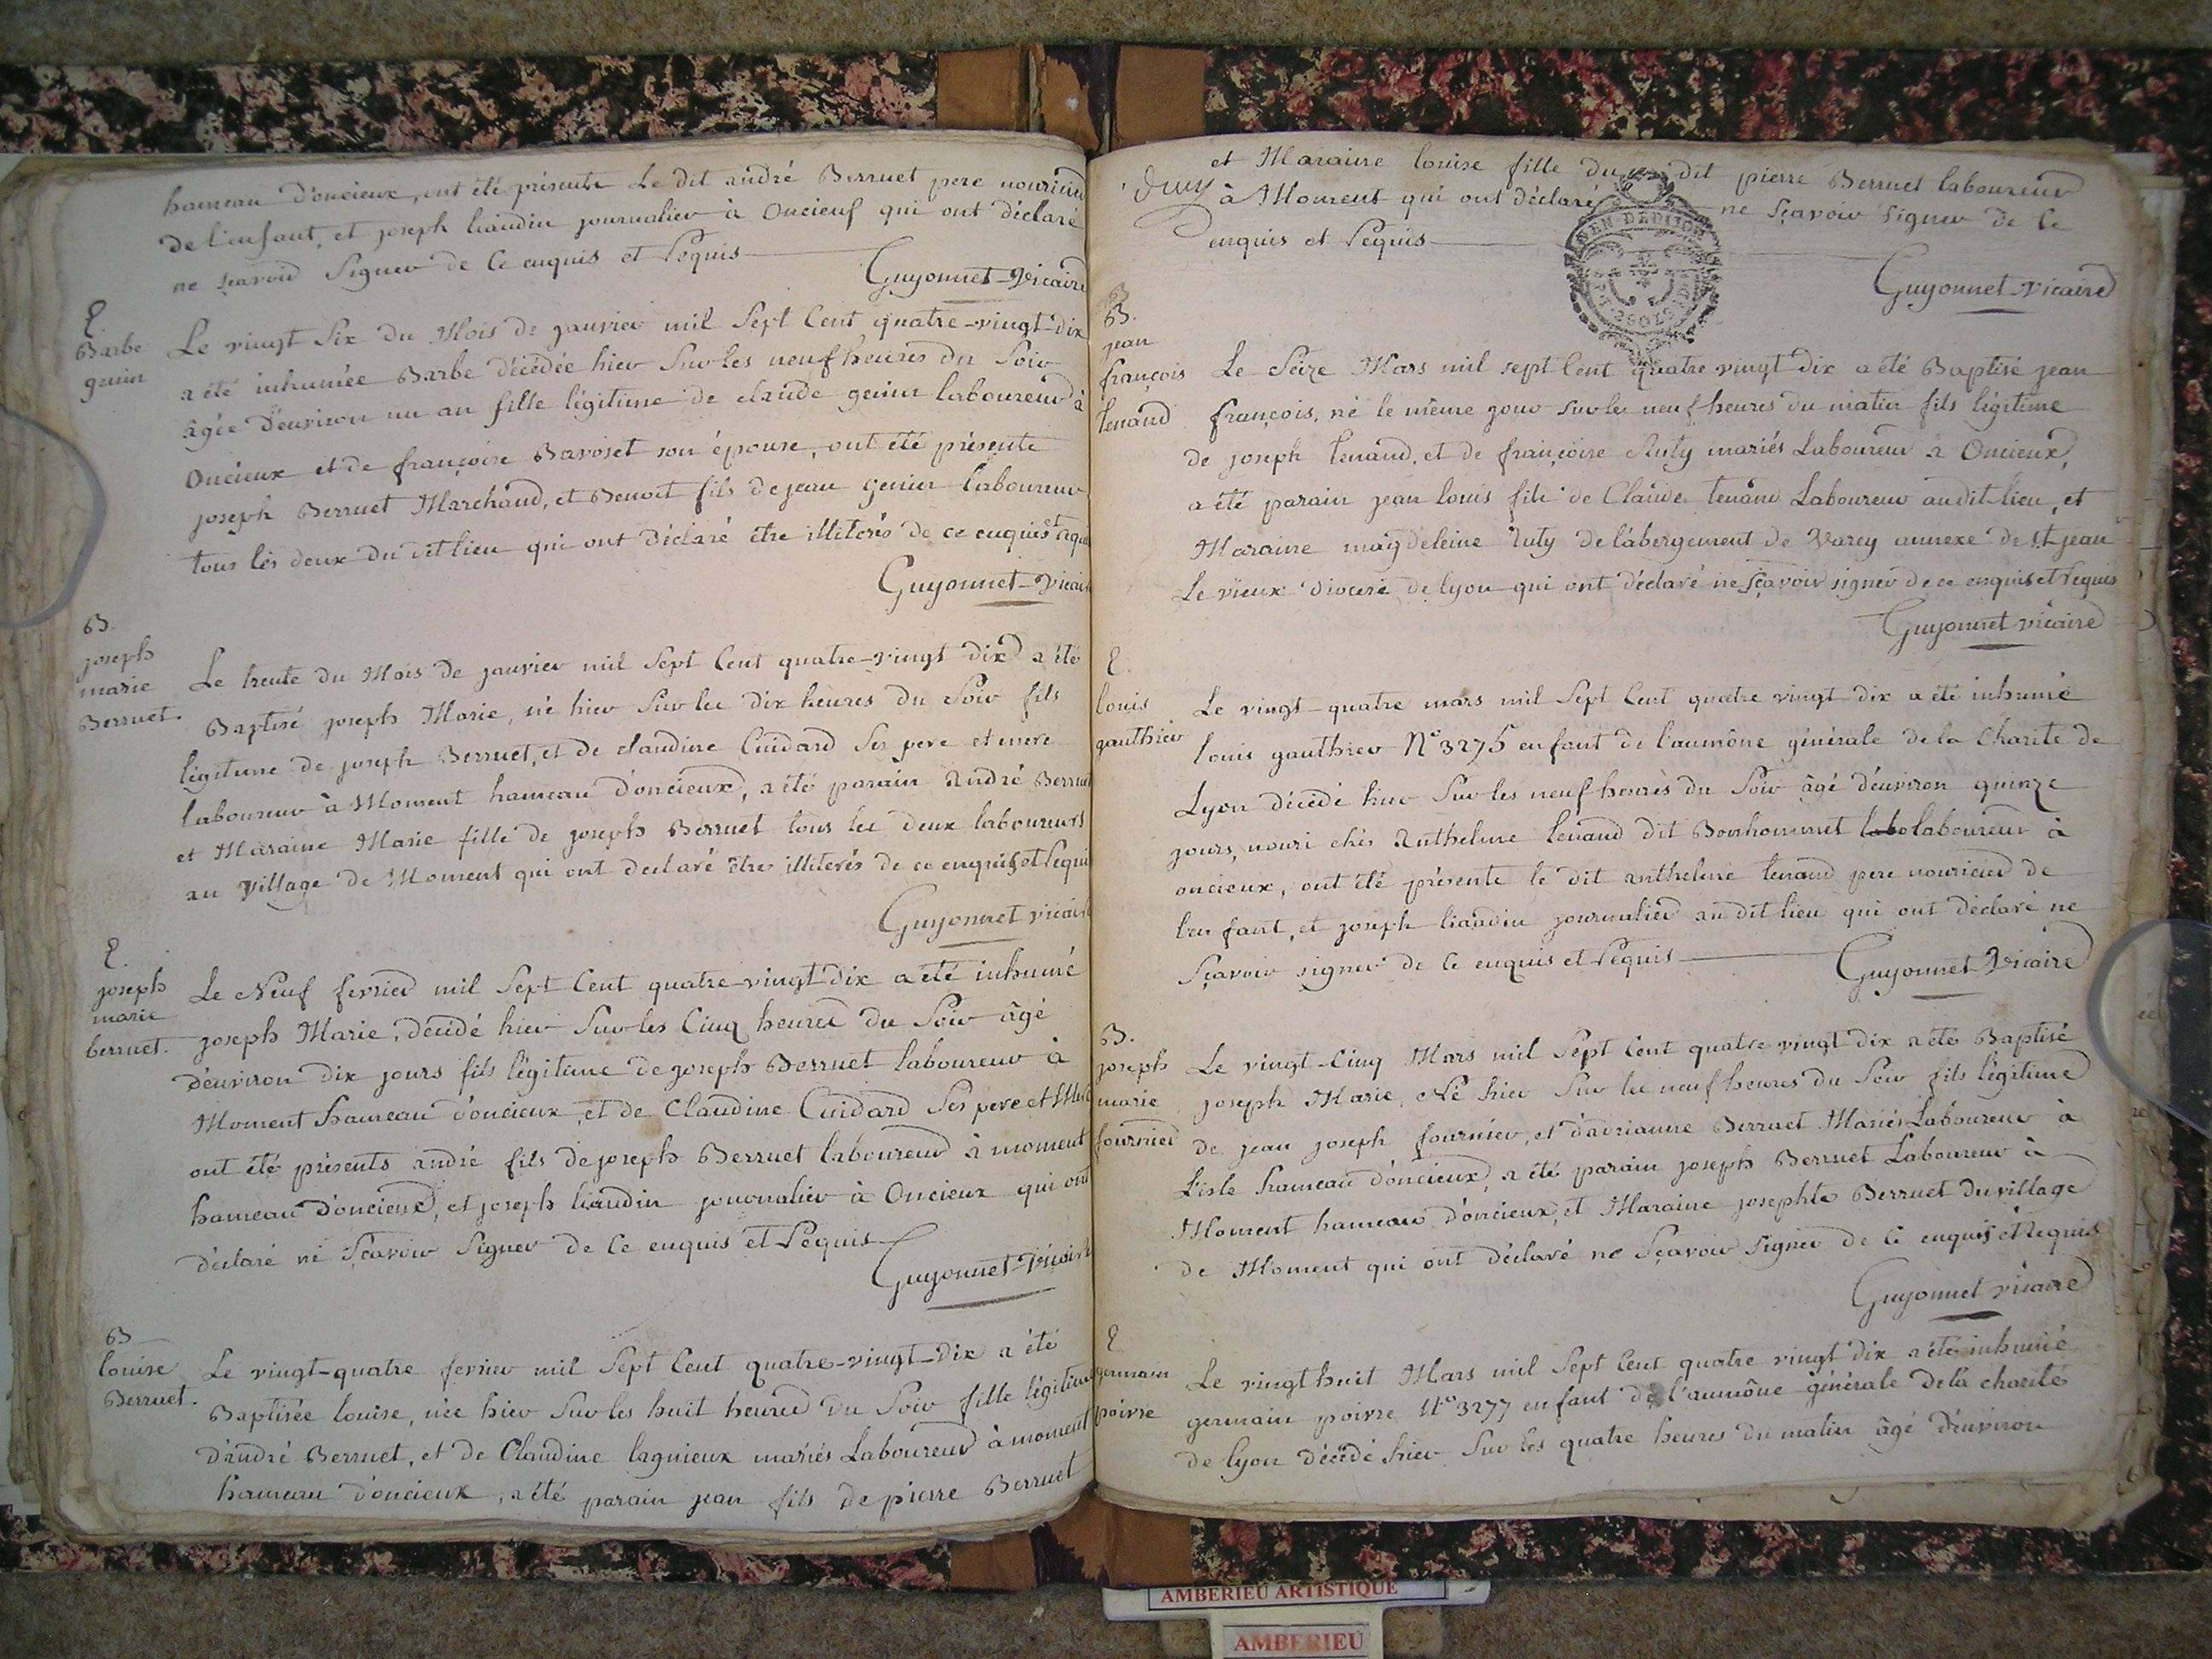 hameau d'oncieux, ont été présents le dit andré Berruet pere nouricier
de l'enfant, et joseph liaudin journalier à Oncieuf qui ont déclaré
ne sçavoir signer de ce enquis et requis
Guyonnet vicaire
E.
Barbe
genin
Le vingt six du Mois de janvier mil sept cent quatre-vingt-dix
a été inhumée Barbe décédée hier sur les neuf heures du soir
âgée d'environ un an fille légitime de claude genin laboureur à
Oncieux et de françoise Bavoset son épouse, ont été présents
joseph Berruet Marchand, et Benoit fils de jean genin laboureur
tous les deux du dit lieu qui ont déclaré être illiterés de ce enquis et requis
Guyonnet-vicaire
B.
joseph
marie
Berruet.
Le trente du Mois de janvier mil sept cent quatre-vingt dix a été
Baptisé joseph Marie, né hier sur les dix heures du soir fils
légitime de joseph Berruet, et de claudine Cuidard ses pere et mere
laboureur à Moment hameau d'oncieux, a été parain andré Berruet
et Maraine Marie fille de joseph Berruet tous les deux laboureurs
au village de Moment qui ont declaré être illiterés de ce enquis et requis
Guyonnet vicaire
E.
joseph
marie
berruet.
Le Neuf fevrier mil sept cent quatre-vingt dix a été inhumé
joseph Marie, decédé hier sur les cinq heures du soir âgé
d'environ dix jours fils légitime de joseph Berruet laboureur à
Moment hameau d'oncieux, et de Claudine Cuidard ses pere et Mere
ont été présents andré fils de joseph Berruet laboureur à moment
hameau d'oncieux, et joseph liaudin journalier à Oncieux qui ont
déclaré ne sçavoir signer de ce enquis et requis
Guyonnet-vicaire
B
louise
Berruet.
Le vingt-quatre fevrier mil sept cent quatre-vingt-dix a été
Baptisée louise, née hier sur les huit heures du soir fille légitime
d'andré Berruet, et de Claudine lagnieux mariés Laboureur à moment
hameau d'oncieux, a été parain jean fils de pierre Berruet
et Maraine louise fille du dit pierre Berruet laboureur
à Moment qui ont déclaré ne sçavoir signer de ce
enquis et requis
Guyonnet-vicaire
B.
jean
françois
tenand
Le seize Mars mil sept cent quatre vingt dix a été Baptisé jean
françois, né le même jour sur les neuf heures du matin fils légitime
de joseph tenand, et de françoise Ruty mariés Laboureur à Oncieux,
a été parain jean louis fils de Claude tenand Laboureur au dit lieu, et
Maraine magdeleine Ruty de l'abergement de Varey annexe de St jean
Le vieux diocese de lyon qui ont déclaré ne sçavoir signer de ce enquis et requis
Guyonnet vicaire
E.
louis
gauthier
Le vingt-quatre mars mil sept cent quatre vingt dix a été inhumé
louis gauthier N° 3275 enfant de l'aumône générale de la Charité de
Lyon décédé hier sur les neuf heures du soir âgé d'environ quinze
jours, nouri chés Anthelme tenand dit Bonhommet labo laboureur à
oncieux, ont été présents le dit anthelme tenand pere nouricier de
l'enfant, et joseph liaudin journalier au dit lieu qui ont déclaré ne
sçavoir signer de ce enquis et requis
Guyonnet vicaire
B.
joseph
marie
fournier
Le vingt-cinq Mars mil sept cent quatre vingt dix a été Baptisé
joseph Marie, Né hier sur les neuf heures du soir fils légitime
de jean joseph fournier, et d'adrianne Berruet Mariés Laboureur à
l'isle hameau d'oncieux, a été parain joseph Berruet Laboureur à
Moment hameau d'oncieux, et Maraine josephte Berruet du village
de Moment qui ont déclaré ne sçavoir signer de ce enquis et requis
Guyonnet vicaire
E
germain
poivre
Le vingt huit Mars mil sept cent quatre vingt dix a été inhumé
germain poivre N° 3277 enfant de l'aumône générale de la charité
de lyon décédé hier sur les quatre heures du matin âgé d'environ
AMBERIEU ARTISTIQUE
AMBERIEU